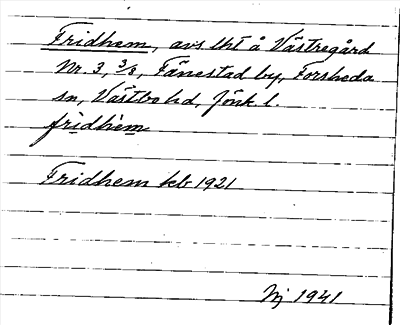 Fridhem, avs lht å Västregård
Nr 3, 3/8, Tånestad by, Forsheda
sn, Västbo hd, Jönk. l.
fridhem
Fridhem kb 1921
Nj 1941